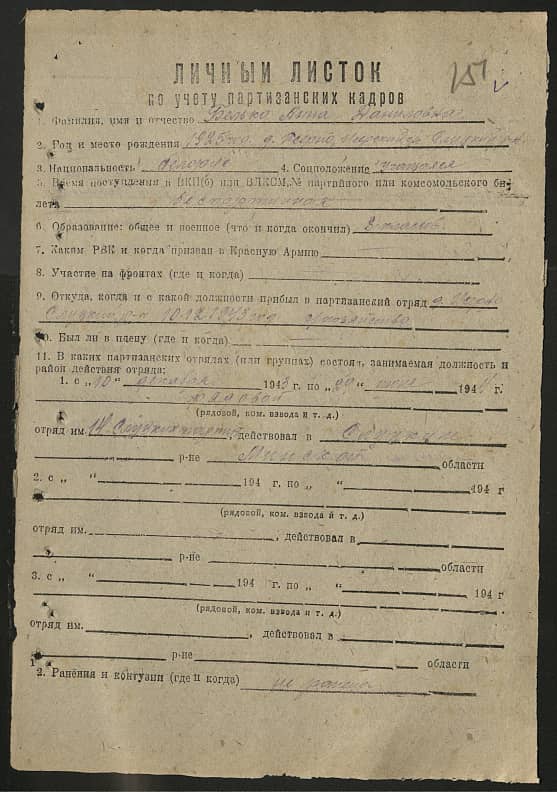 ЛИЧНЫЙ ЛИСТОК
по учету партизанских кадров
1. Фамилия, имя и отчество Анна Даниловна
2. Год и место рождения 1925 г. д.
3. Национальность 4. Соцположение учащаяся
5. Время поступления в ВКП(б) или ВЛКСМ, № партийного или комсомольского би-
лета беспартийная
6. Образование: общее и военное (что и когда окончил) 8 классов
7. Каким РВК и когда призван в Красную Армию
8. Участие на фронтах (где и когда)
9. Откуда, когда и с какой должности прибыл в партизанский отряд д.
Слуцкий р-н 10.12.1943 год
10. Был ли в плену (где и когда)
11. В каких партизанских отрядах (или группах) состоял, занимаемая должность и
район действия отряда:
1. с „10“ декабря 1943 г. по „ “ 194 г.
рядовой
(рядовой, ком. взвода и т. д.)
отряд им. 14 , действовал в
р-не Минской области
2. с „ “ 194 г. по „ “ 194 г
(рядовой, ком. взвода и т. д.)
отряд им. , действовал в
р-не области
3. с „ “ 194 г. по „ “ 194 г
(рядовой, ком. взвода и т. д.)
отряд им. , действовал в
р-не области
12. Ранения и контузии (где и когда) не ранена